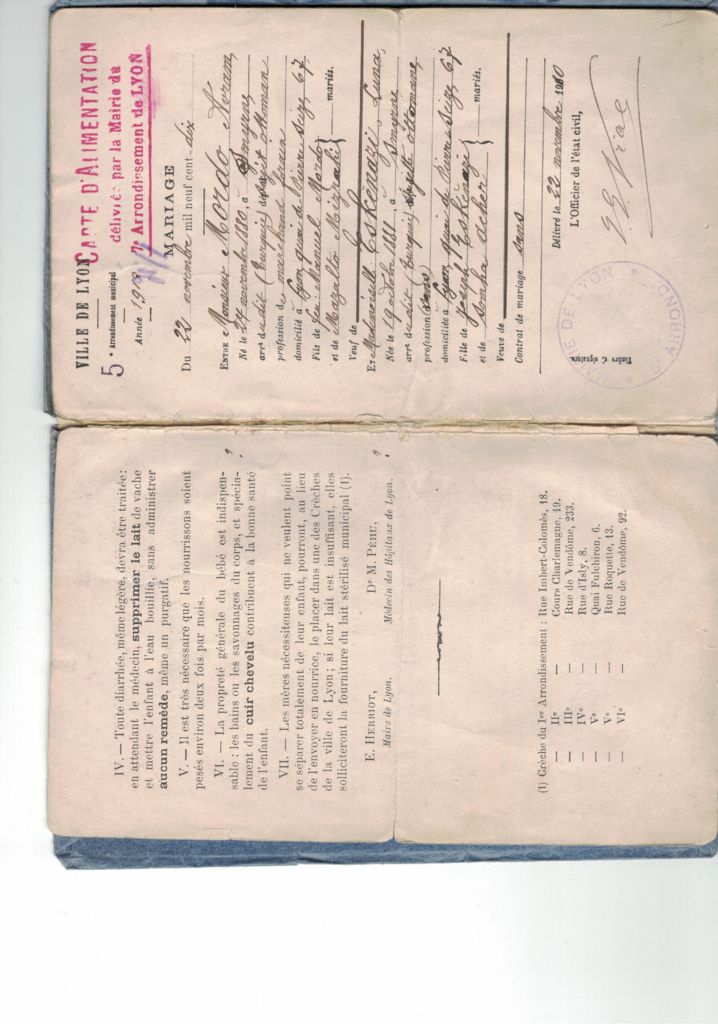 IV. — Toute diarrhée, même légère, devra être traitée:
en attendant le médecin, supprimer le lait de vache
et mettre l'enfant à l'eau bouillie, sans administrer
aucun remède, même un purgatif.
V. — Il est très nécessaire que les nourrissons soient
pesés environ deux fois par mois.
VI. — La propreté générale du bébé est indispen-
sable : les bains ou les savonnages du corps, et spécia-
lement du cuir chevelu contribuent à la bonne santé
de l'enfant.
VII. — Les mères nécessiteuses qui ne veulent point
se séparer totalement de leur enfant, pourront, au lieu
de l'envoyer en nourrice, le placer dans une des Crèches
de la ville de Lyon ; si leur lait est insuffisant, elles
solliciteront la fourniture du lait stérilisé municipal (1).
E. HERRIOT, Dr M. PÉHU,
Maire de Lyon. Médecin des Hôpitaux de Lyon.
(1) Crèche du Ier Arrondissement : Rue Imbert-Colomès, 18.
— IIe — Cours Charlemagne, 19.
— IIIe — Rue de Vendôme, 233.
— IVe — Rue d'Isly, 8.
— Ve — Quai Fulchiron, 6.
— Ve — Rue Roquette, 13.
— VIe — Rue de Vendôme, 92.
VILLE DE LYON
CARTE D'ALIMENTATION
délivrée par la Mairie du
7e Arrondissement de LYON
5e Arrondissement municipal
Année 19
MARIAGE
Du 22 novembre mil neuf cent-dix
ENTRE Monsieur Mordo Avram
Né le 27 novembre 1880, à Smyrne
arrt dudit (Turquie) sujet ottoman
profession de marchand forain
domicilié à Lyon quai de Pierre Scize 67
Fils de feu Mordo
et de Mazalto Mizrahi } mariés.
Veuf de
ET Mademoiselle Eskénazi Luna
Née le 19 octobre 1881, à Smyrne
arrt dudit (Turquie) sujette ottomane
profession (sans)
domiciliée à Lyon quai de Pierre Scize 67
Fille de Joseph Eskénazi
et de Simha } mariés.
Veuve de
Contrat de mariage sans
Délivré le 22 novembre 1910
L'Officier de l'état civil,
Timbre et signature.
MAIRIE DE LYON
5e ARRONDt